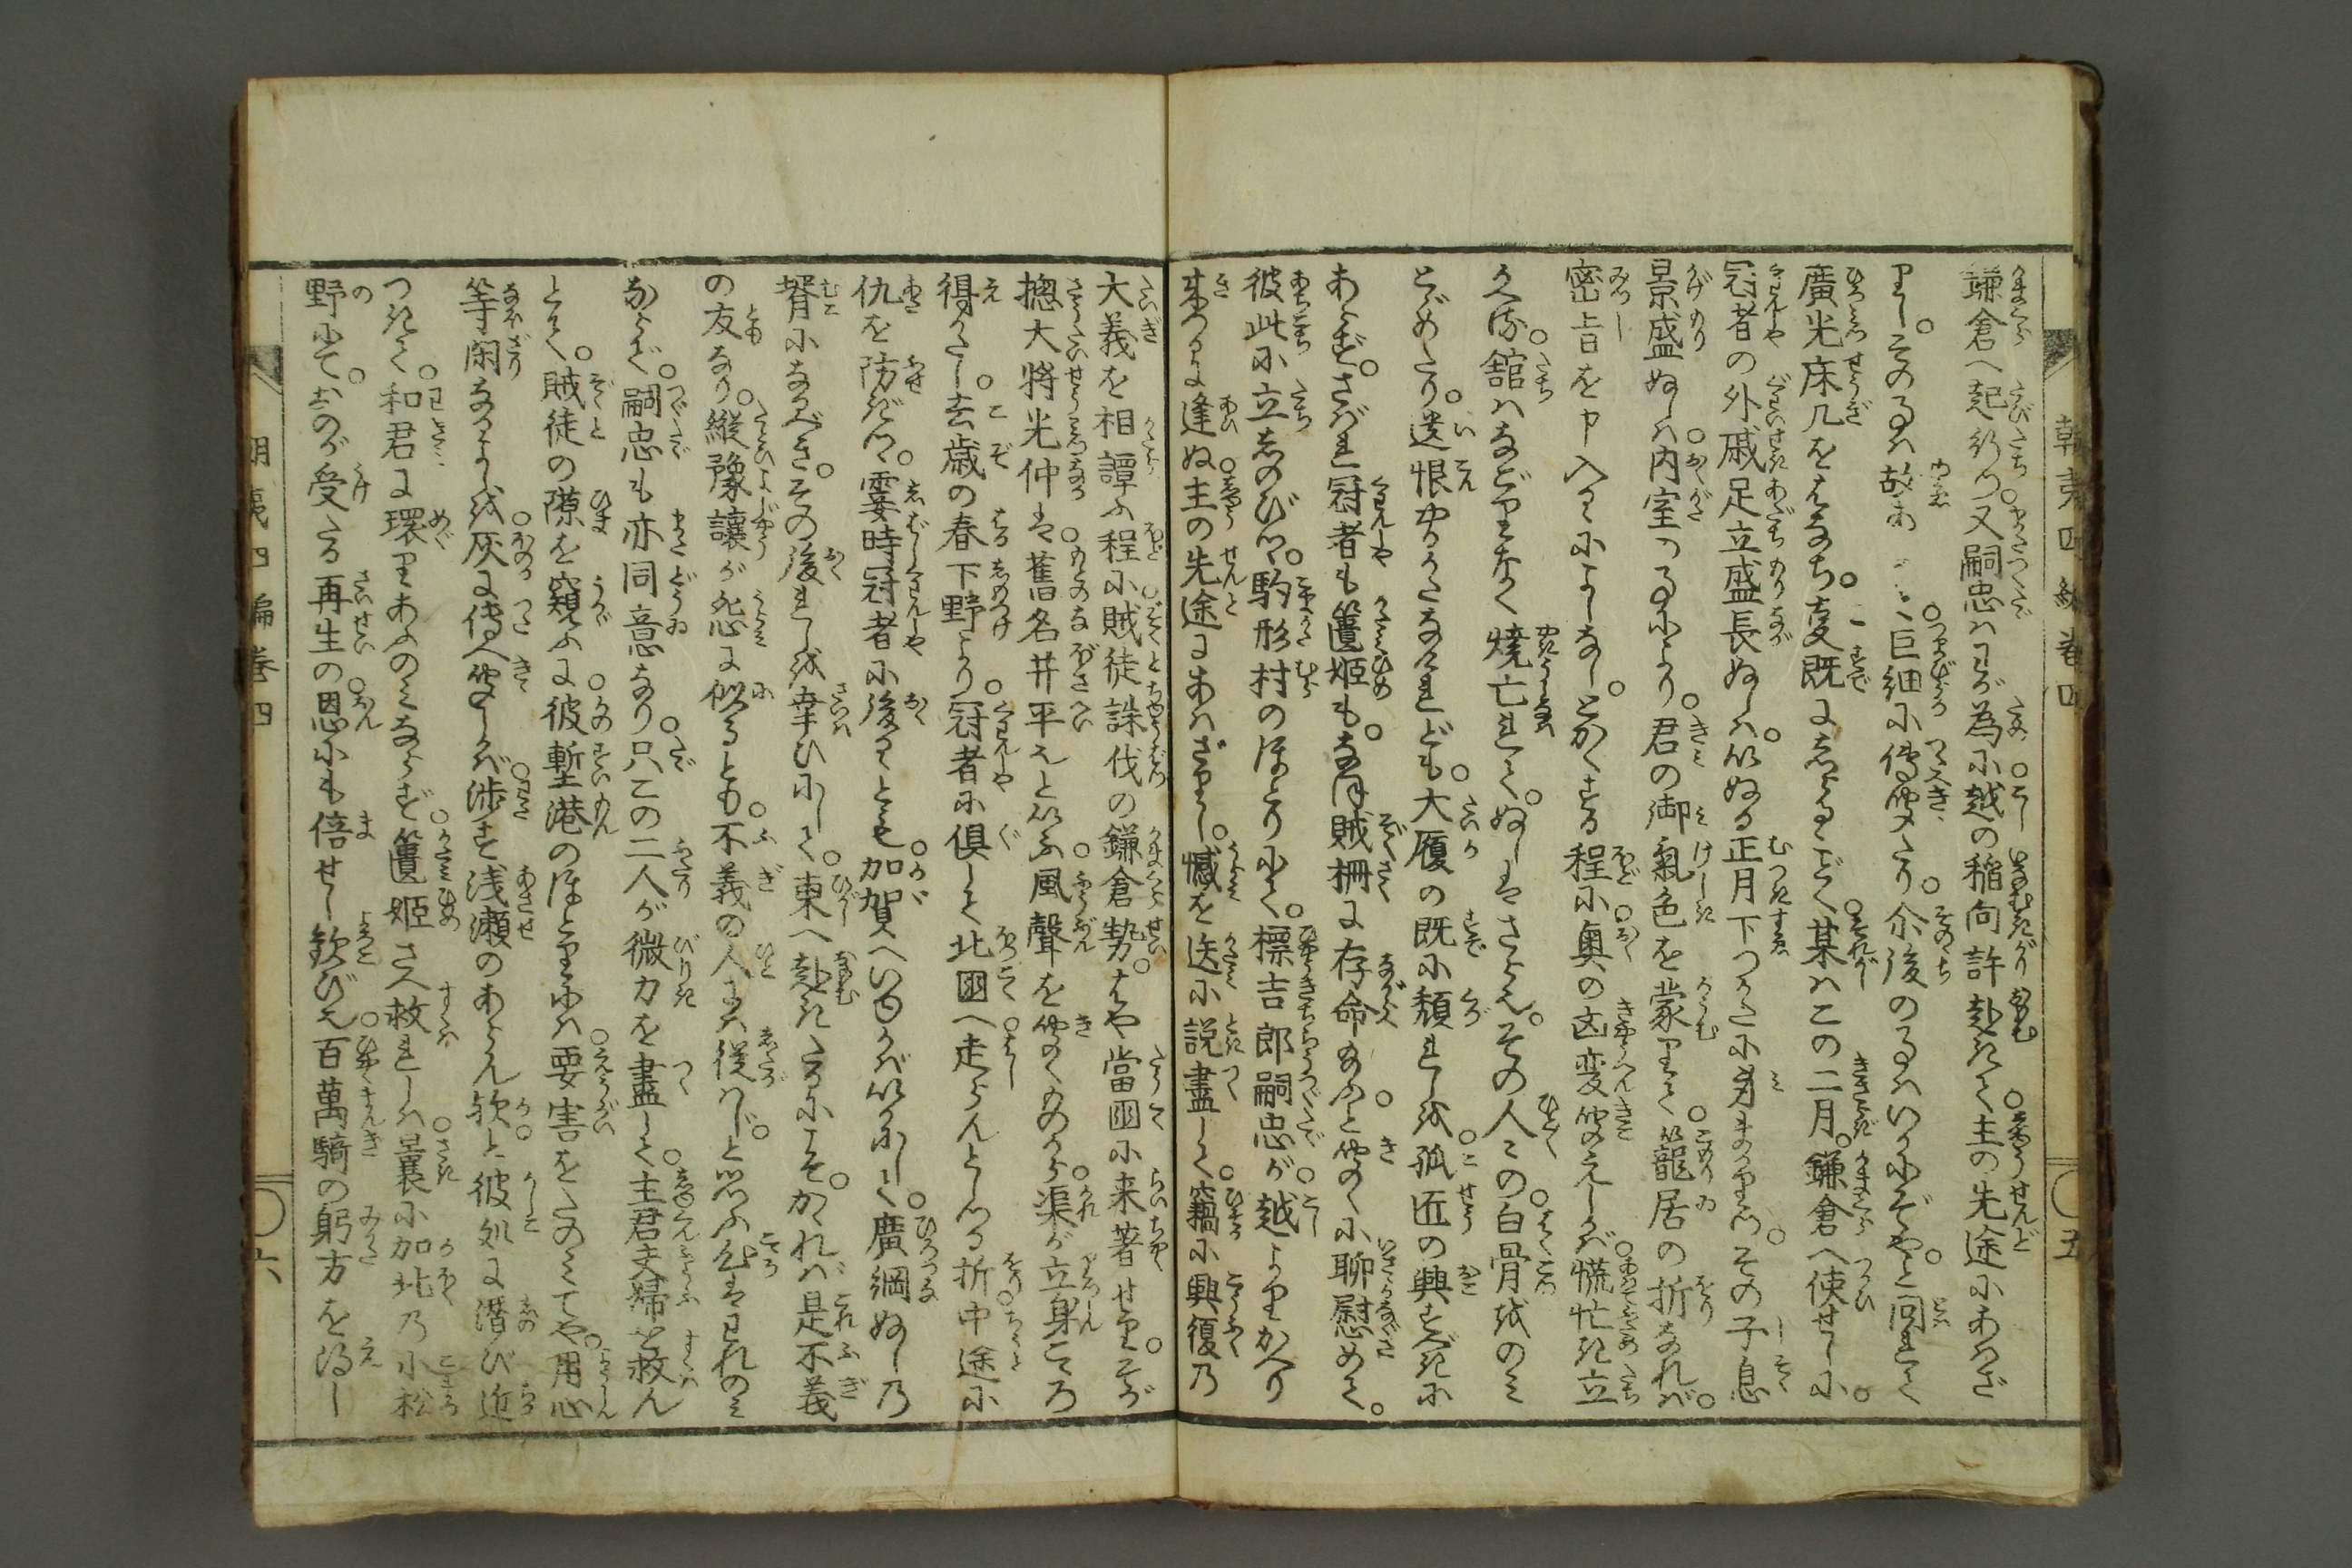 朝夷四編巻四
五
鎌倉へ起行つ又嗣忠はわが為に越の稲向許赴きて主の先途にあはざ
りし。その事は故あ 巨細に傳聞たり。尒後の事はいかにぞや。と問れて
廣光床几をはなち。こ既にしらるゝごとく某はこの二月。鎌倉へ使せしに。
冠者の外戚足立盛長ぬしは。いぬる正月下つかたに身まかりつ。その子息
景盛ぬしは内室の事により。君の御氣色を蒙りて籠居の折なれば。
密旨を申入るゝによしなし。とかくする程に奥の凶変聞えしかば慌忙き立
かへる舘はなごりなく焼亡れて。ぬしはさら也。その人々の白骨をのみ
とゞめたり。遺恨やるかたなけれども。大厦の既に頽れしを孤匠の興すべきに
あらず。さばれ冠者も篋姫も。なほ賊柵に存命給ふと聞くに聊慰めて。
彼此に立しのびつゝ。駒形村のほとりにて。標吉郎嗣忠が越よりかへり
来つるに逢ぬ主の先途にあはざりし。憾を迭に説盡して。竊に興復の
大義を相譚ふ程に賊徒誅伐の鎌倉勢。はや當國に来著せり。そが
摠大將光仲は舊名井平とといふ風聲を聞くものから渠が立身こゝろ
得がたし。去歳の春下野より。冠者に倶して北國へ走らんとしつる折中途に
仇を防ぎつゝ。霎時冠者に後るゝとも加賀へいゆかばいかにして廣綱ぬしの
壻になるべき。その後れしを幸ひにして。東へ赴きたるにこそ。かゝれば是不義
の友なり。縦豫讓が怨に似るとも。不義の人には從はじと思ふ心はわれのみ
ならで。嗣忠も亦同意なり。只この二人が微力を盡して。主君夫婦を救ん
とて。賊徒の隙を窺ふに。彼塹港のほとりには。要害をたのみてや。用心
等閑なるよしを仄に傳へ聞しかば渉す浅瀬のあらん欤と彼処に潜び近
つきて。和君に環りあふのみならず篋姫さへ救れしは曩に加北の小松
野にて。おのが受たる再生の恩にも倍せし歓び也百萬騎の躬方を得し
朝夷四編巻四
六